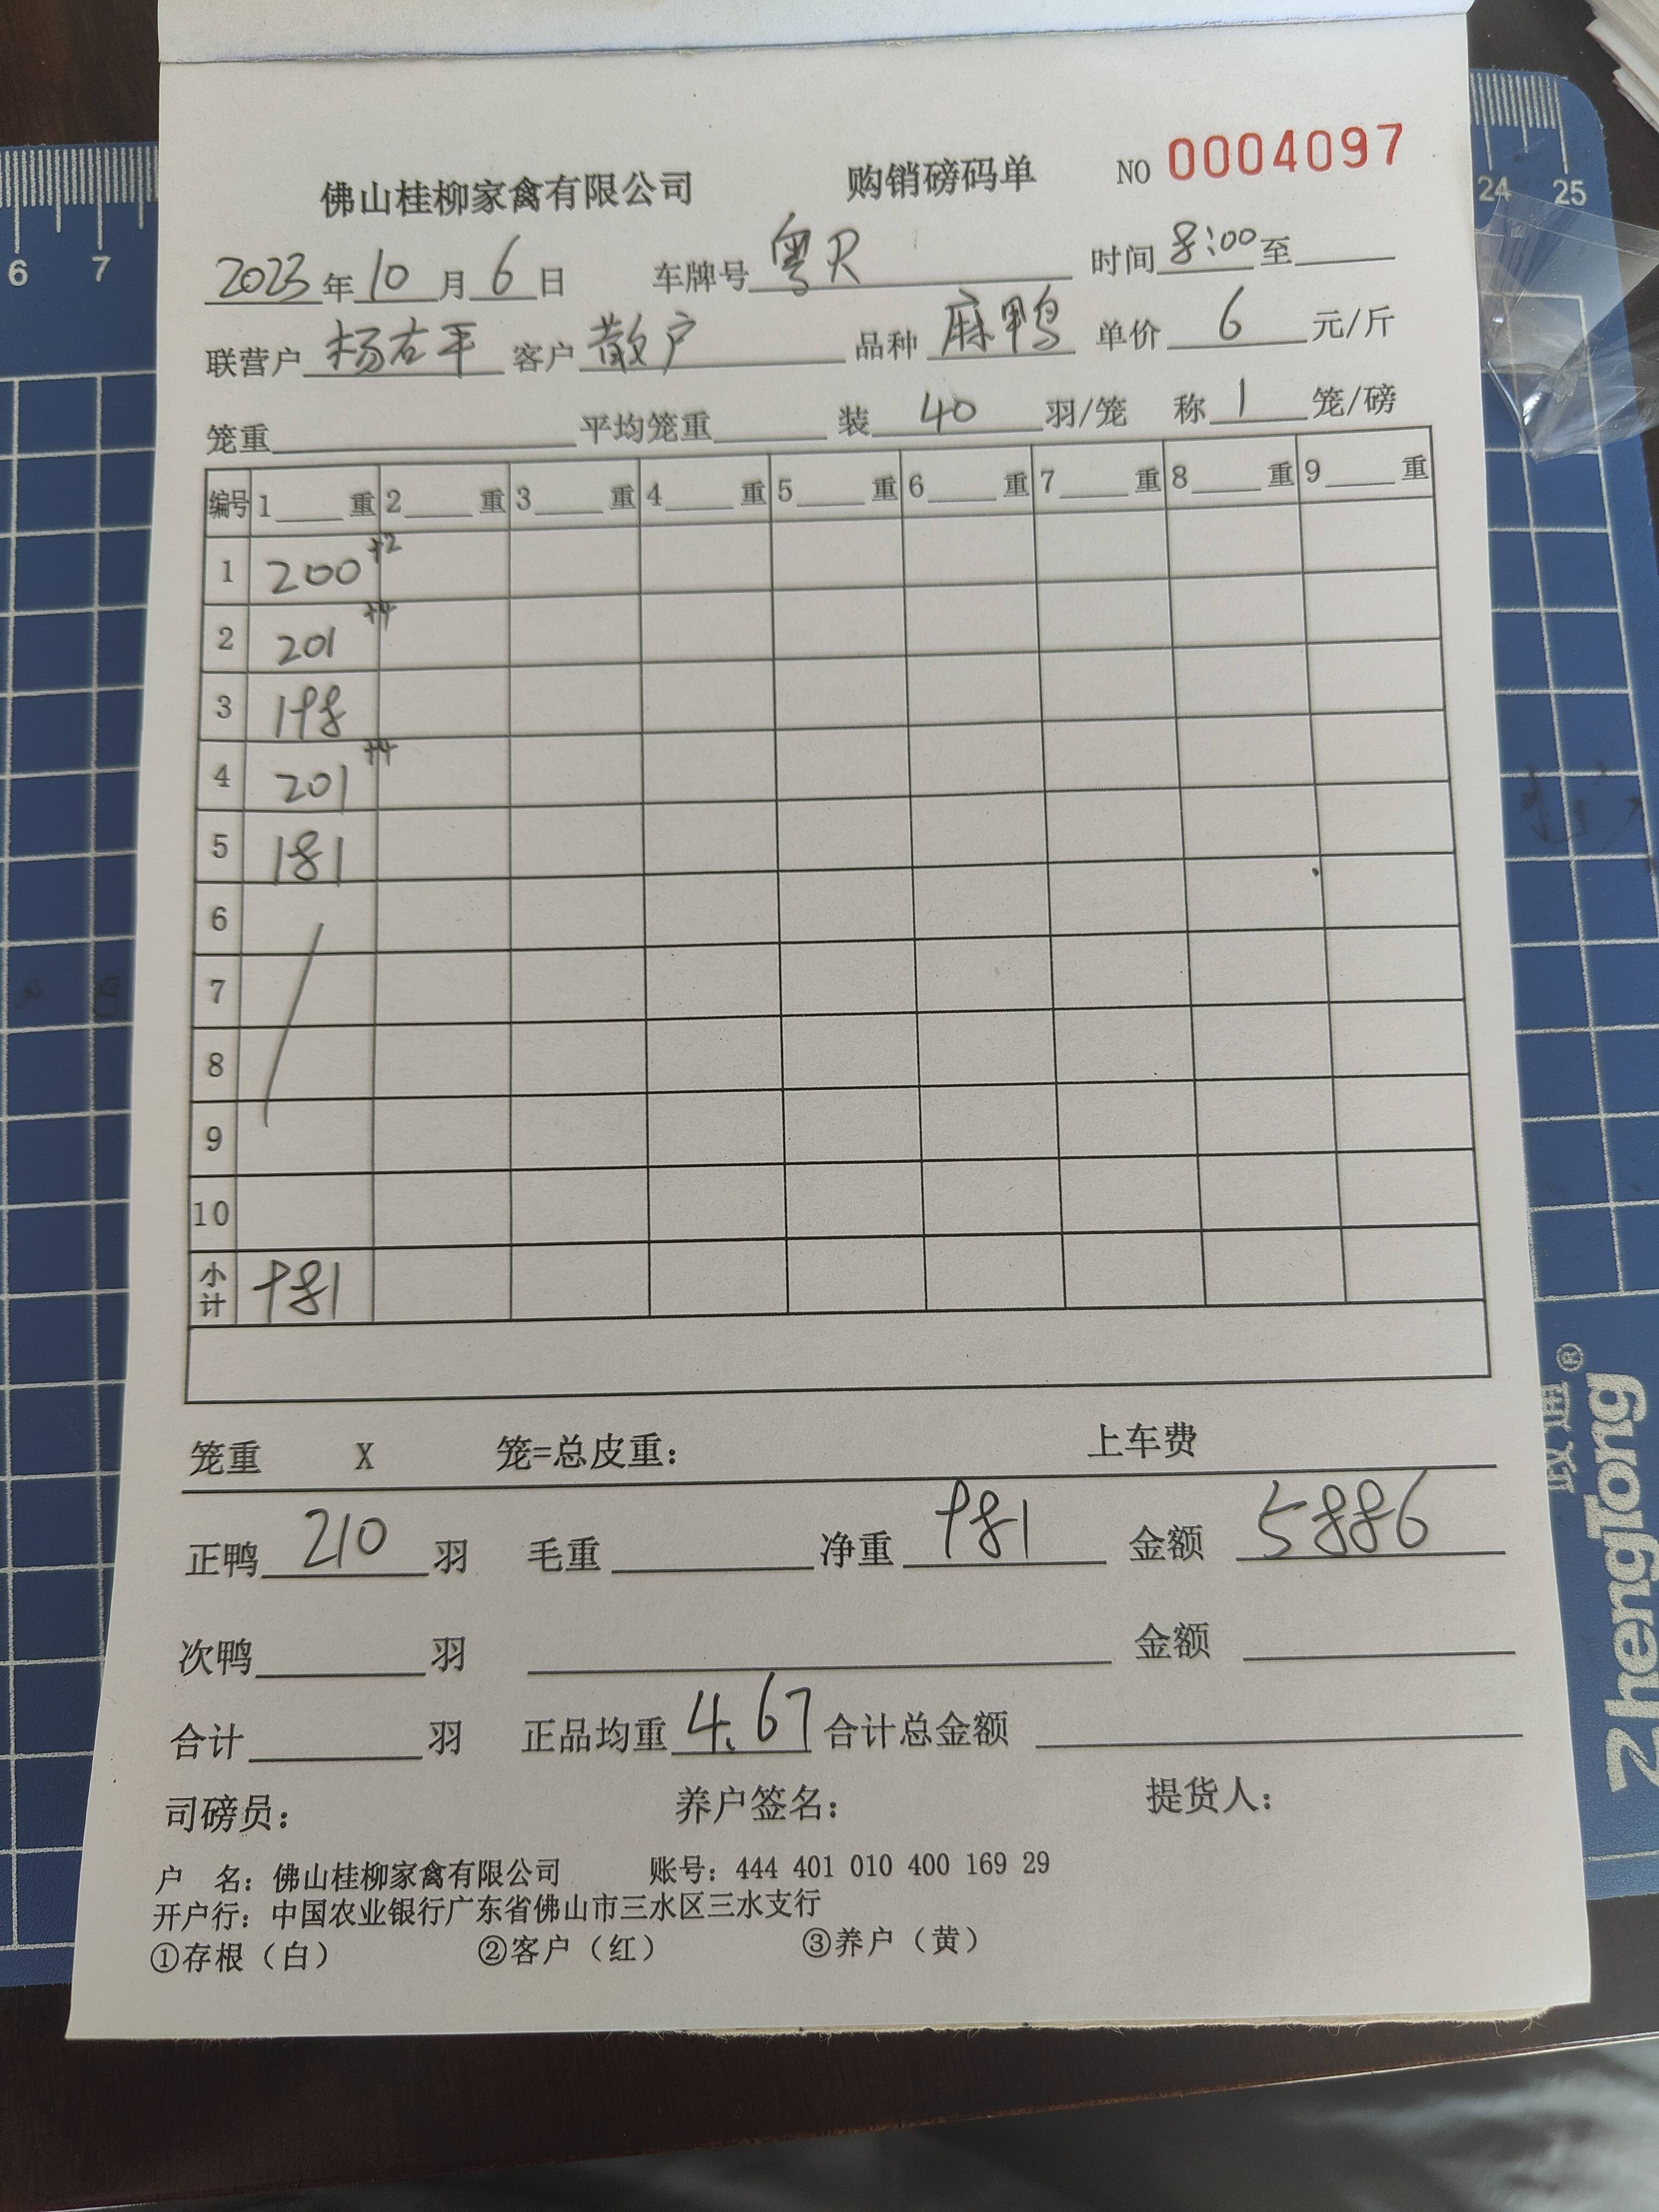 佛山桂柳家禽有限公司 购销磅码单 NO 0004097
2023年10月6日 车牌号 粤R 时间 8:00 至
联营户 杨右平 客户 散户 品种 麻鸭 单价 6 元/斤
笼重 平均笼重 装 40 羽/笼 称 1 笼/磅
编号 1 重 2 重 3 重 4 重 5 重 6 重 7 重 8 重 9 重
1 200 +2
2 201 +4
3 198
4 201 +4
5 181
6
7
8
9
10
小计 981
笼重 X 笼=总皮重: 上车费
正鸭 210 羽 毛重 净重 981 金额 5886
次鸭 羽 金额
合计 羽 正品均重 4.67 合计总金额
司磅员: 养户签名: 提货人:
户 名: 佛山桂柳家禽有限公司 账号: 444 401 010 400 169 29
开户行: 中国农业银行广东省佛山市三水区三水支行
①存根（白） ②客户（红） ③养户（黄）
6 7 24 25
ZhengTong ®